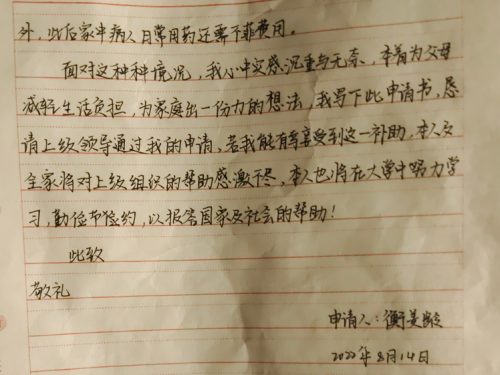 外，此后家中病人日常用药还需不菲费用。
面对这种种情况，我心中实感沉重与无奈，本着为父母
减轻生活负担，为家庭出一份力的想法，我写下此申请书，恳
请上级领导通过我的申请、若我能有幸享受到这一补助，本人及
全家将对上级组织的帮助感激不尽，本人也将在大学中努力学
习，勤俭节约，以报答国家及社会的帮助！
此致
敬礼
申请人：衡美龄
2022年8月14日